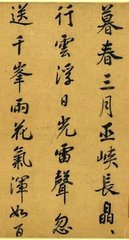 暮春三月巫峽長晶〻
行雲浮日光雷聲忽
送千峯雨花氣渾如百